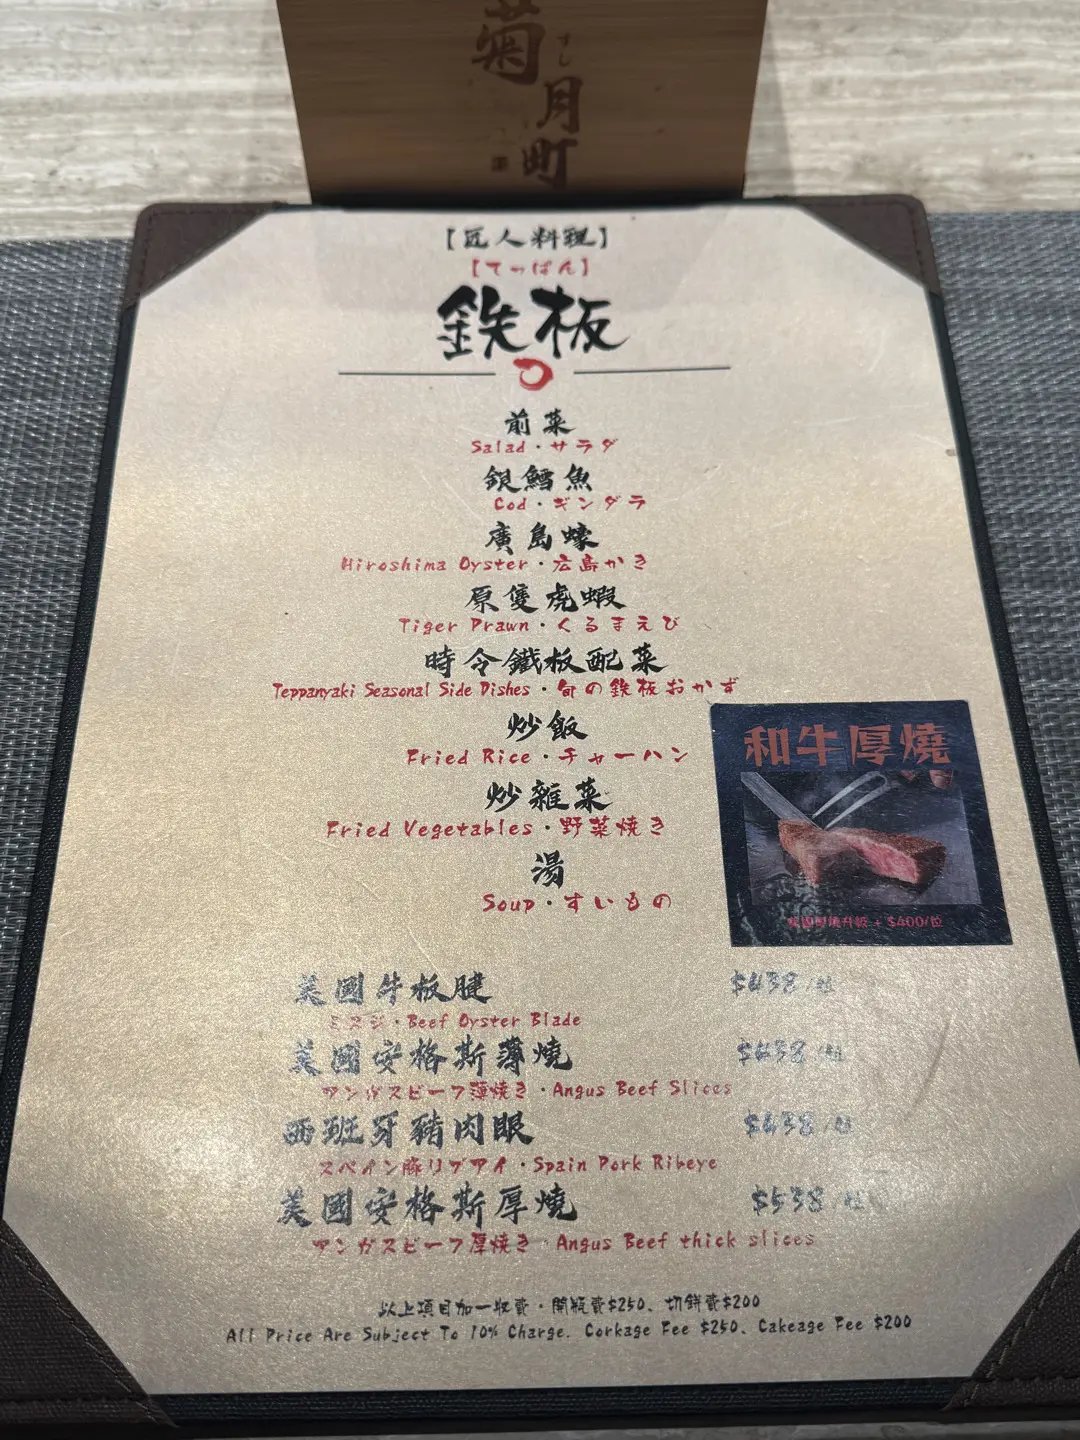 菊月町
すし
【匠人料理】
【てっぱん】
鉄板
前菜
Salad・サラダ
銀鱈魚
Cod・ギンダラ
廣島蠔
Hiroshima Oyster・広島かき
原隻虎蝦
Tiger Prawn・くるまえび
時令鐵板配菜
Teppanyaki Seasonal Side Dishes・旬の鉄板おかず
炒飯
Fried Rice・チャーハン
炒雜菜
Fried Vegetables・野菜焼き
湯
Soup・すいもの
和牛厚燒
厚燒升級 + $400/位
美國牛板腱 $438/位
ミスジ・Beef Oyster Blade
美國安格斯薄燒 $438/位
アンガスビーフ薄焼き・Angus Beef Slices
西班牙豬肉眼 $438/位
スペイン豚リブアイ・Spain Pork Ribeye
美國安格斯厚燒 $538/位
アンガスビーフ厚焼き・Angus Beef thick slices
以上項目加一收費・開瓶費$250、切餅費$200
All Price Are Subject To 10% Charge. Corkage Fee $250、Cakeage Fee $200